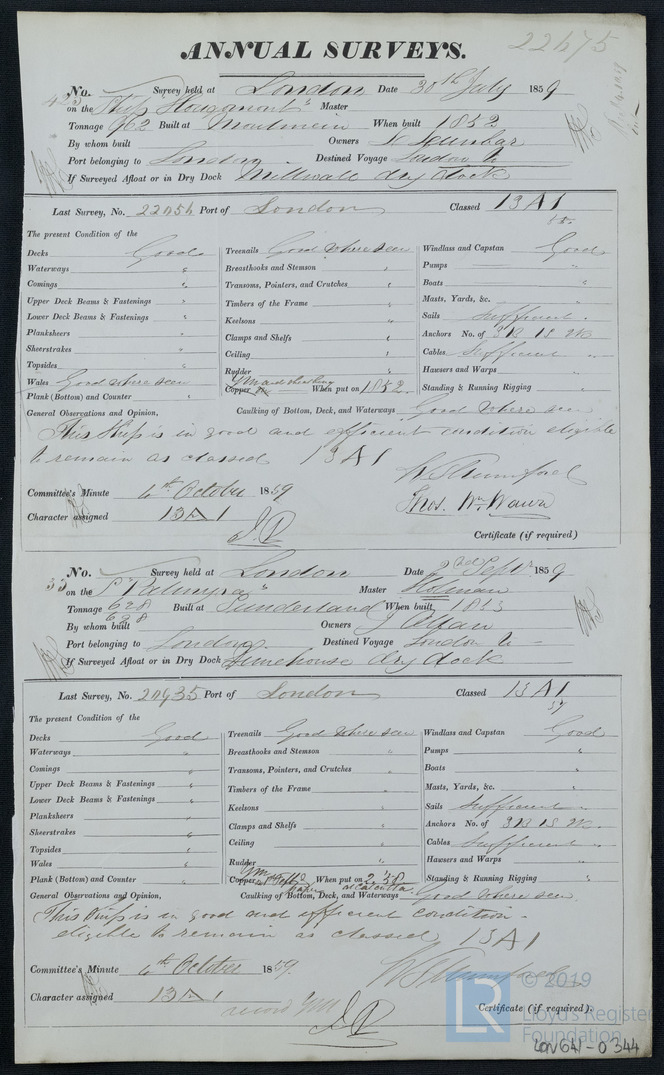 ANNUAL SURVEYS.
22475
No. Survey held at London Date 30th July 1859
on the Ship Hougomont" Master
Tonnage 962 Built at Moulmein When built 1852
By whom built Owners Dunbar
Port belonging to London Destined Voyage London to
If Surveyed Afloat or in Dry Dock Millwall dry dock
Last Survey, No. Port of London Classed 13 A 1
The present Condition of the
Decks Good Treenails Good where seen Windlass and Capstan Good
Waterways " Breasthooks and Stemson " Pumps "
Comings " Transoms, Pointers, and Crutches " Boats "
Upper Deck Beams & Fastenings " Timbers of the Frame " Masts, Yards, &c. "
Lower Deck Beams & Fastenings " Keelsons " Sails Sufficient
Planksheers " Clamps and Shelfs " Anchors No. of 3B 1S 2K
Sheerstrakes " Ceiling " Cables Sufficient
Topsides " Rudder " Hawsers and Warps "
Wales Good where seen Copper When put on 1852 Standing & Running Rigging "
Plank (Bottom) and Counter "
General Observations and Opinion, Caulking of Bottom, Deck, and Waterways Good where seen
This Ship is in good and efficient condition eligible
to remain as classed 13 A 1
Committee's Minute 4th October 1859
Character assigned 13 A 1
Certificate (if required)
No. Survey held at London Date 2nd Septr 1859
on the S "Palmyra" Master Holman
Tonnage 628 Built at Sunderland When built
628
By whom built Owners J Allan
Port belonging to London Destined Voyage London to
If Surveyed Afloat or in Dry Dock Limehouse dry dock
Last Survey, No. Port of London Classed 13 A 1
57
The present Condition of the
Decks Good Treenails Good where seen Windlass and Capstan Good
Waterways " Breasthooks and Stemson " Pumps "
Comings " Transoms, Pointers, and Crutches " Boats "
Upper Deck Beams & Fastenings " Timbers of the Frame " Masts, Yards, &c. "
Lower Deck Beams & Fastenings " Keelsons " Sails Sufficient
Planksheers " Clamps and Shelfs " Anchors No. of 3B 1S 2K
Sheerstrakes " Ceiling " Cables Sufficient
Topsides " Rudder Hawsers and Warps "
Wales " Copper When put on 2.58 Standing & Running Rigging "
at Calcutta
Plank (Bottom) and Counter "
General Observations and Opinion, Caulking of Bottom, Deck, and Waterways Good where seen
This Ship is in good and efficient condition
eligible to remain as classed 13 A 1
Committee's Minute 4th October 1859.
Character assigned 13 A 1
Certificate (if required).
© 2019
LR
Lloyd's Register
Foundation
LON641-0344